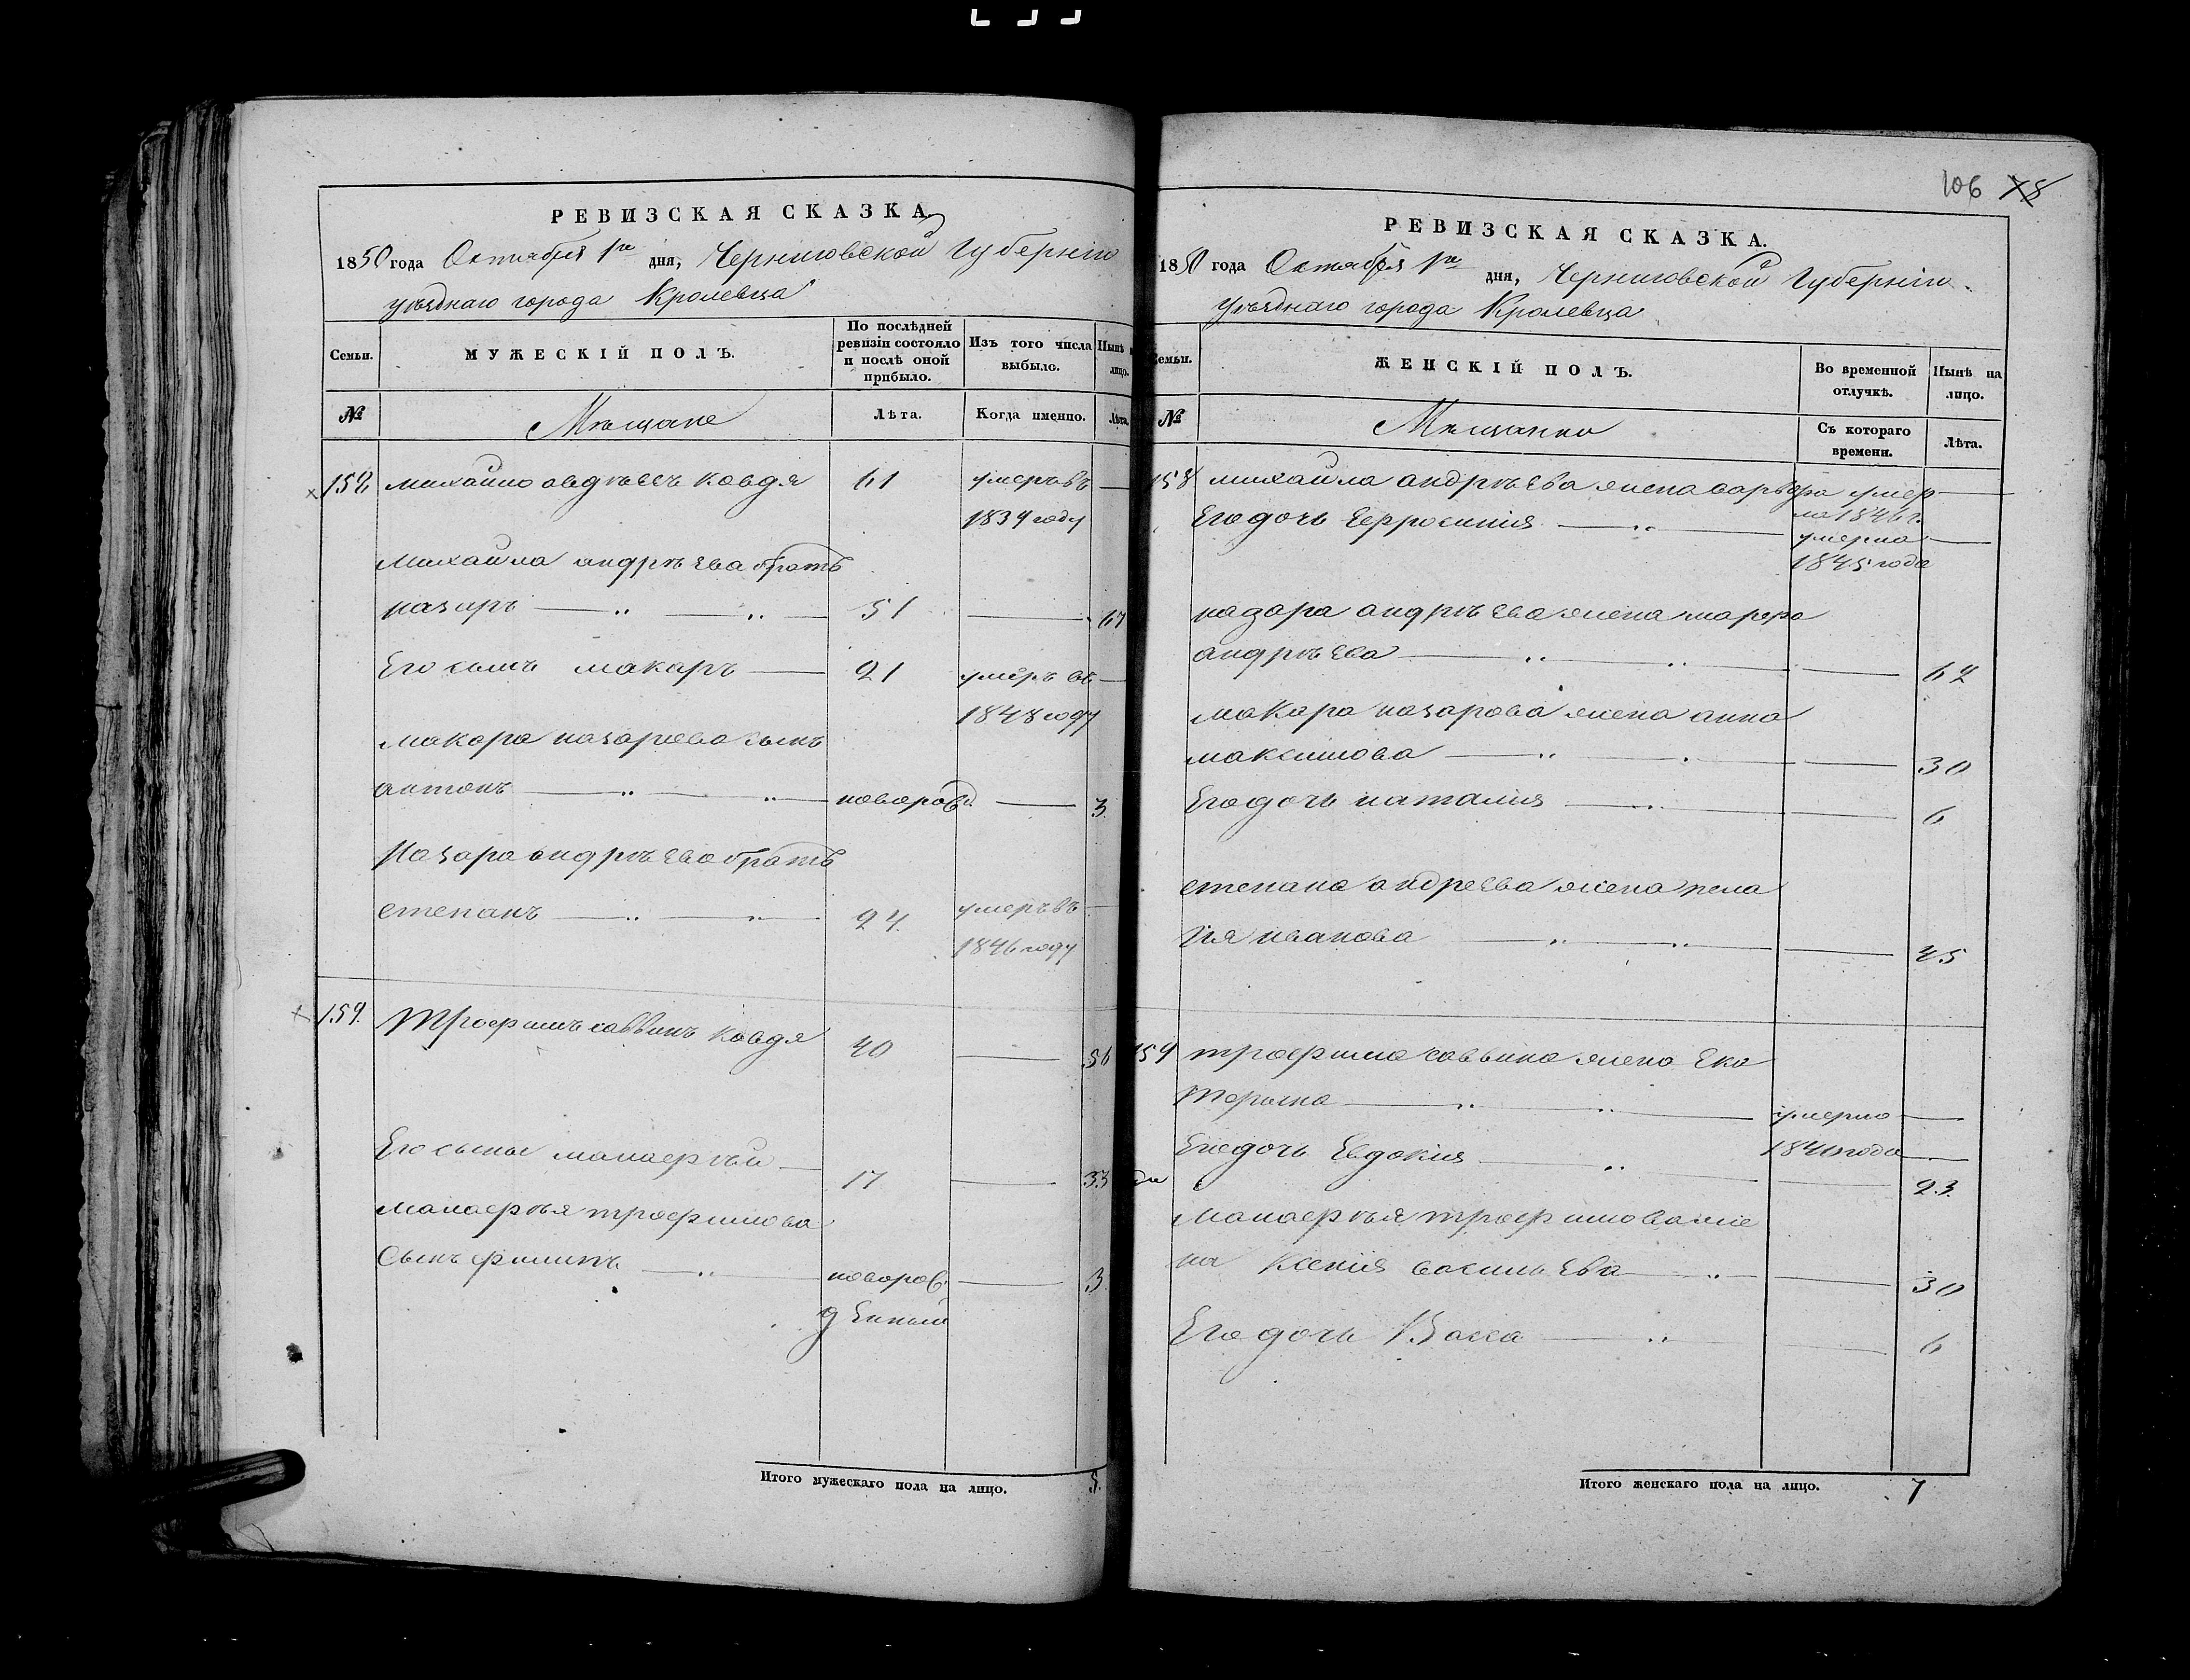 РЕВИЗСКАЯ СКАЗКА
1850 года Октября 1го дня, Черниговской Губернiи
уѣзднаго города Кролевца
Семьи.
МУЖЕСКІЙ ПОЛЪ.
По послѣдней
ревизіи состояло
и послѣ оной
прибыло.
Изъ того числа
выбыло.
Нынѣ
лицо.
№
Мѣщане
Лѣта.
Когда именно.
Лѣта.
158 михайло андрѣевъ Ковдя 61 умеръ въ
1839 году
михайла андрѣева братъ
назаръ 51 67
Его сынъ макаръ 21 умеръ въ
1848 году
макара назарова сынъ
антонъ новорожд 3
Назара андрѣева братъ
степанъ 24 умеръ въ
1846 году
159. Трофимъ саввинъ Ковдя 40 56
Его сынъ манасрѣй 17 33
трофимова
Сынъ филипъ новорож 3
денный
Итого мужескаго пола на лицо. 5.
106 78
РЕВИЗСКАЯ СКАЗКА.
1850 года Октября 1го дня, Черниговской Губернiи
уѣзднаго города Кролевца
Семьи.
ЖЕНСКІЙ ПОЛЪ.
Во временной
отлучкѣ.
Нынѣ на
лицо.
№
Мѣщанки
Съ котораго
времени.
Лѣта.
158 михайла андрѣева жена варвара умер
ла 1846 г.
Его дочь Ефросинія умерла
1845 года
назара андрѣева жена марфа
андрѣева 62
макара назарова жена анна
максимова 30
Его дочь наталия 6
степана андреева жена пела
гия иванова 45
159 трофима саввина жена Ека
терина умерла
1840 года
Его дочь Евдокия 23
трофимова же
на Ксения васильева 30
Его дочь Васса 6
Итого женскаго пола на лицо. 7